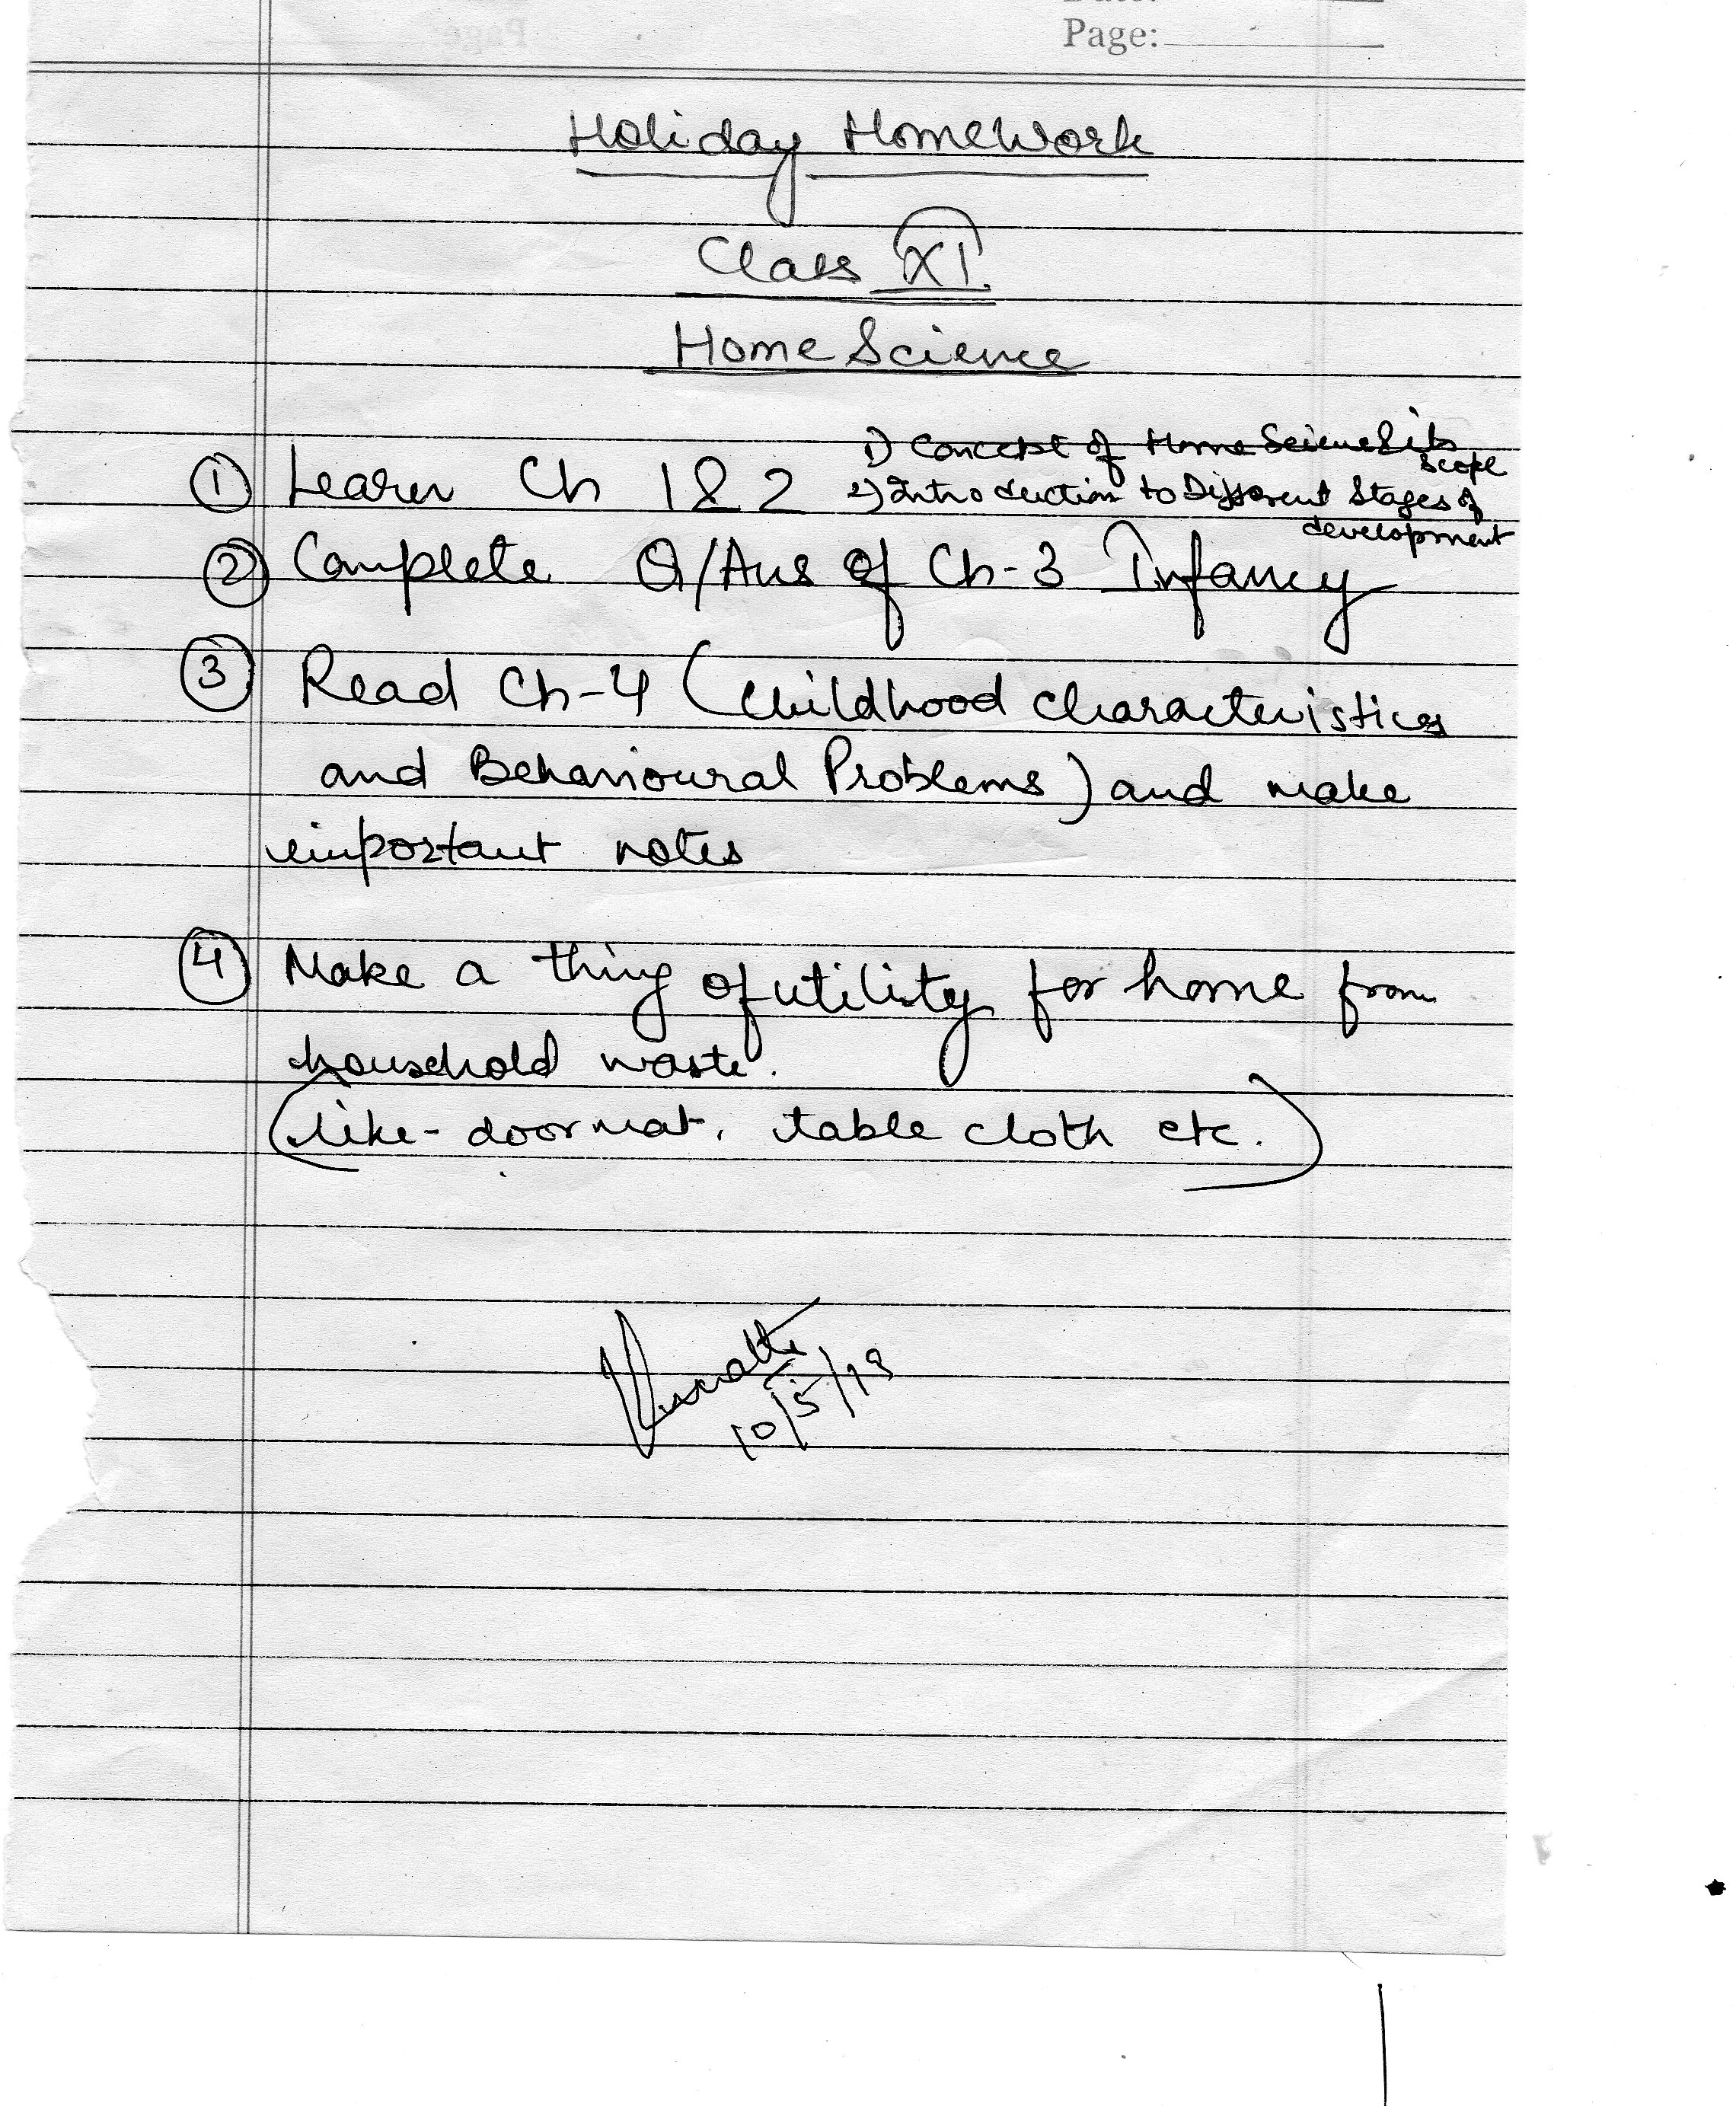 Page:
Holiday HomeWork
Class XI.
Home Science
1) Concept of Home Science & its scope
① Learn Ch 1 & 2 2) Introduction to Different Stages of development
② Complete Q/Ans of Ch-3 Infancy
③ Read Ch-4 (Childhood characteristics
and Behavioural Problems) and make
important notes
④ Make a thing of utility for home from
household waste.
(like- doormat, table cloth etc.)
10/5/19